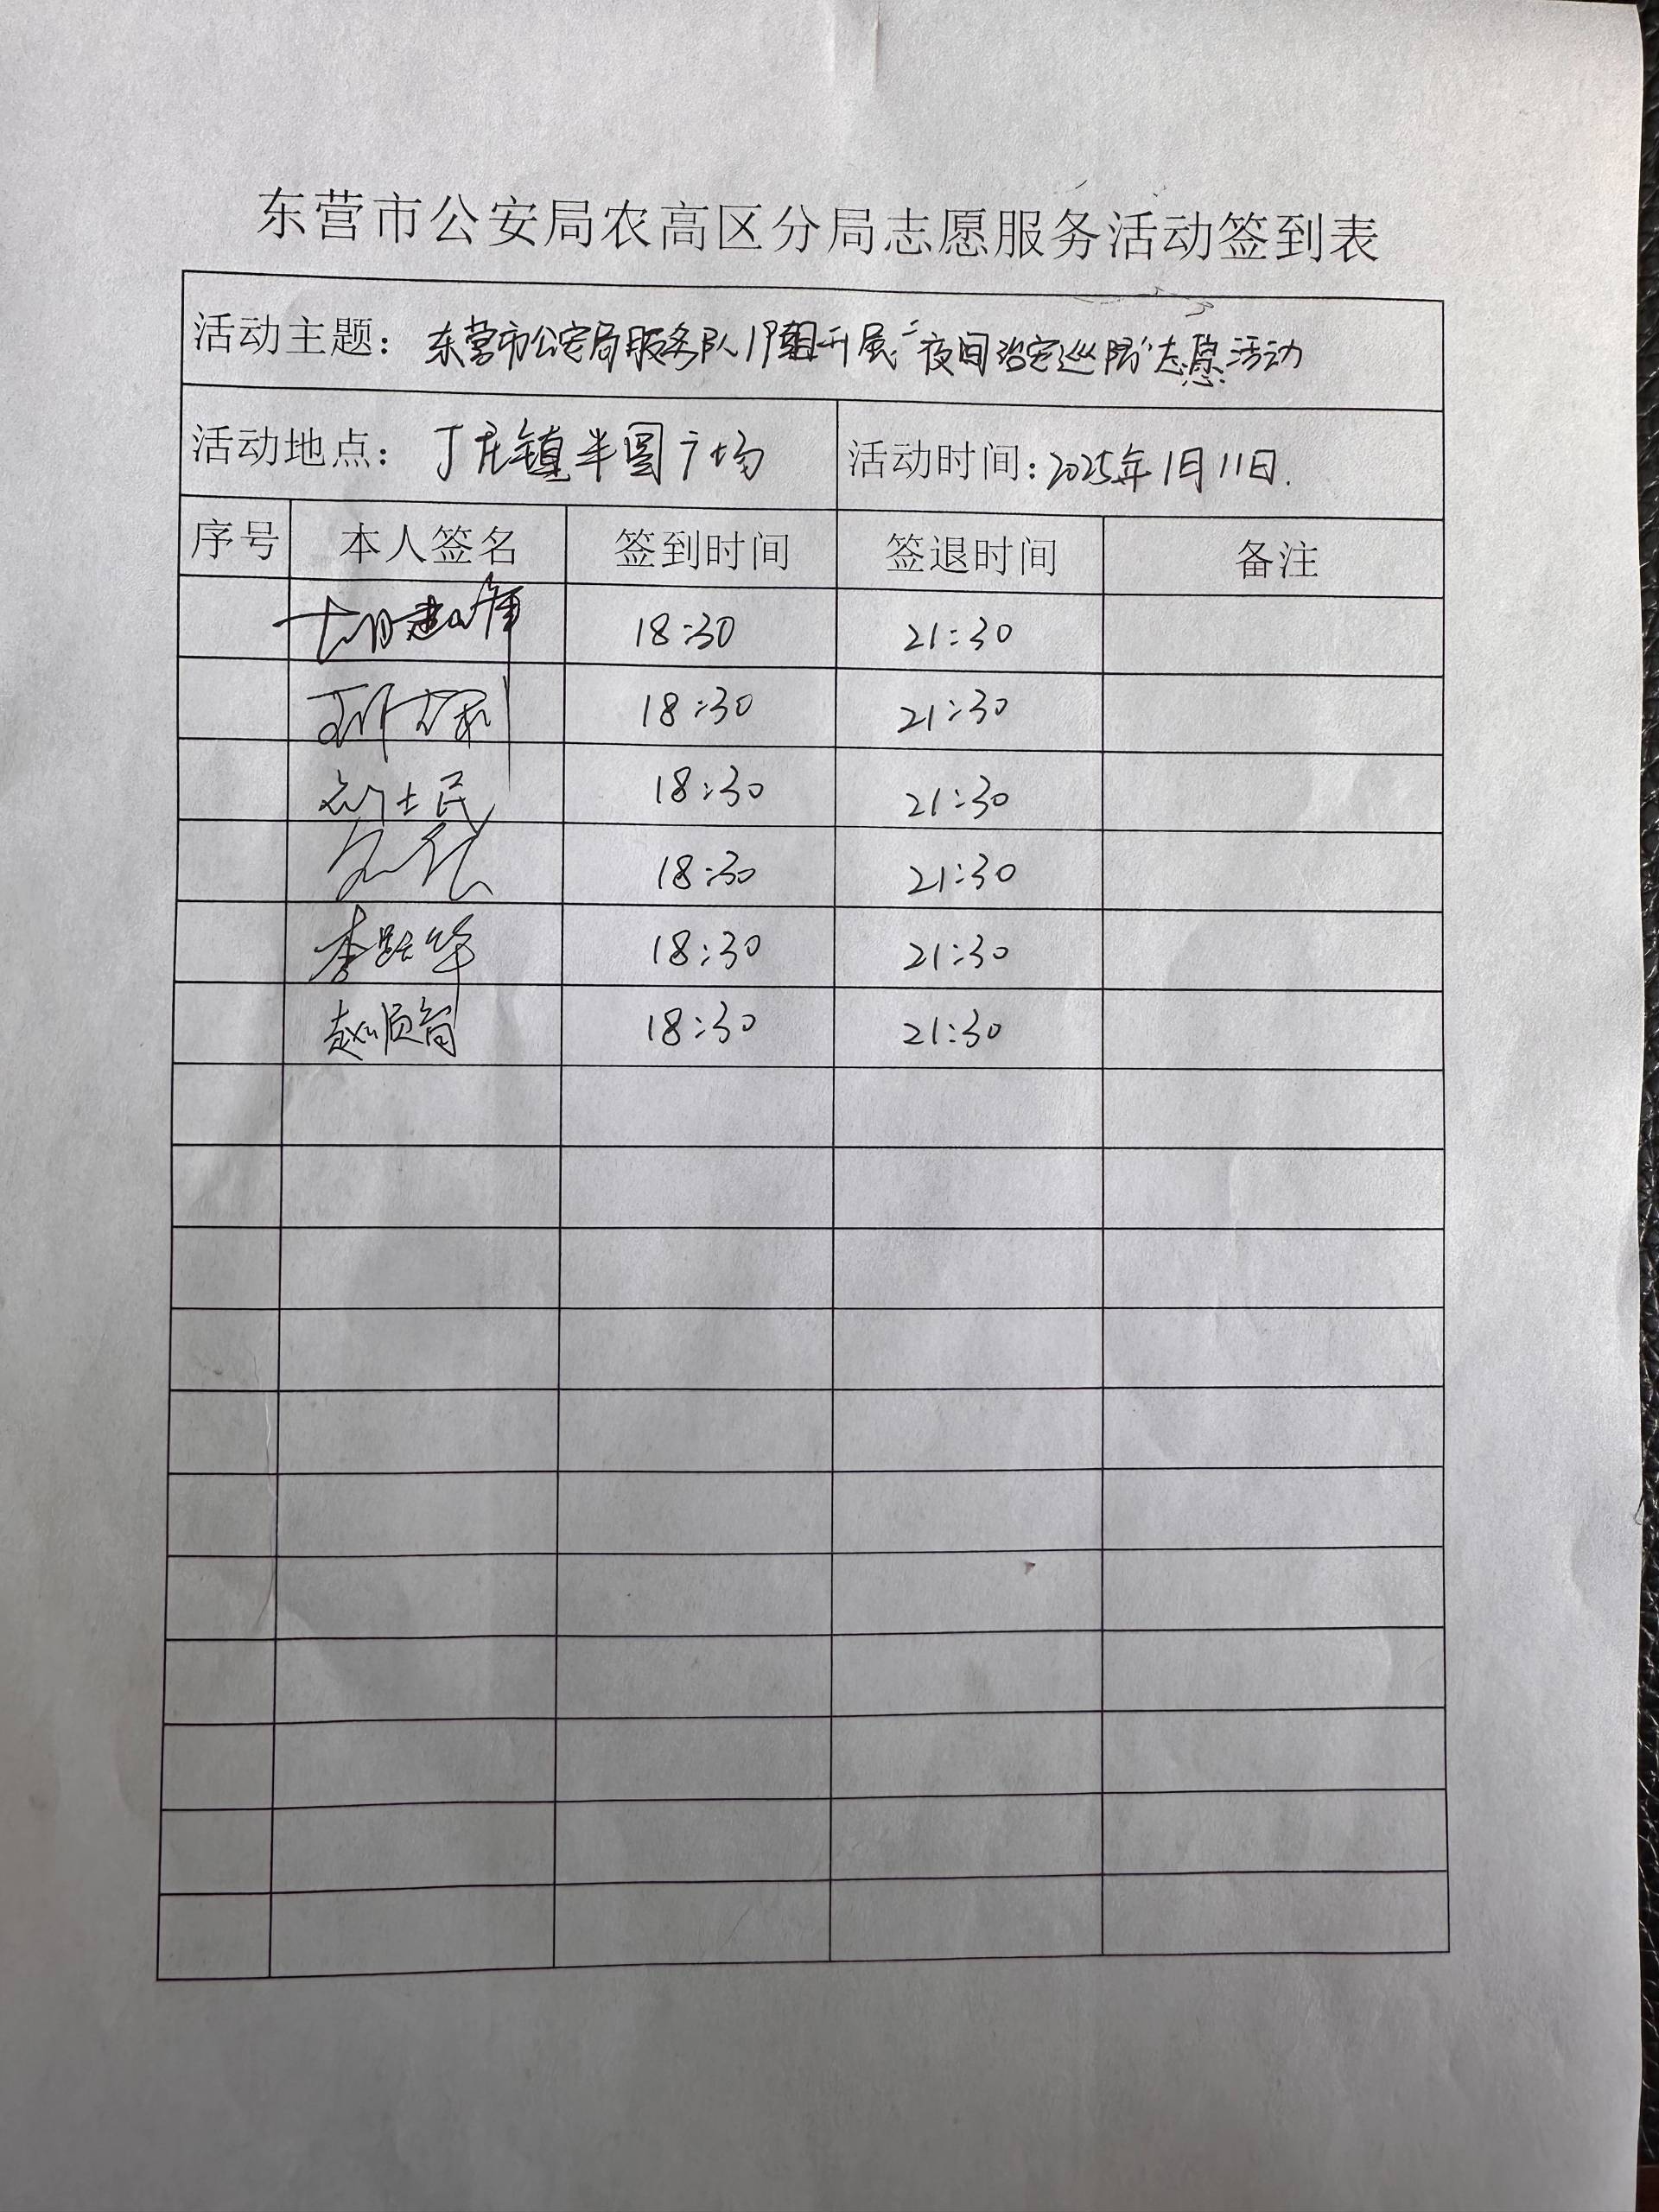 东营市公安局农高区分局志愿服务活动签到表
活动主题：东营市公安局服务队1月11日开展“夜间治安巡防”志愿活动
活动地点：丁庄镇半圆广场 活动时间：2025年1月11日.
序号 本人签名 签到时间 签退时间 备注
18:30 21:30
18:30 21:30
刘士民 18:30 21:30
18:30 21:30
李跃华 18:30 21:30
赵顺 18:30 21:30